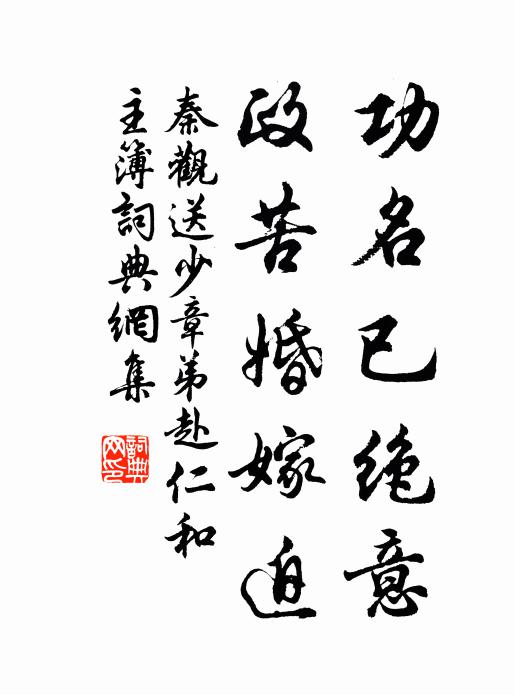 功名已絶意
政苦婚嫁迫
秦觀送少章弟赴仁和
主簿詞典網集
詞典
网印